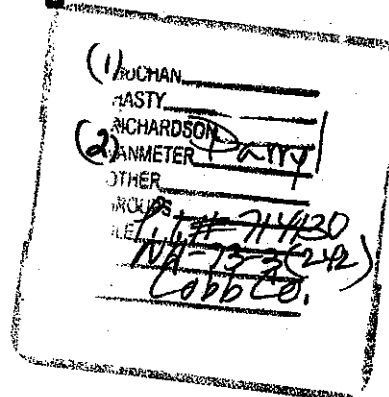 (1) BUCHAN
HASTY
RICHARDSON
(2) VANMETER Parry
OTHER
P.I.# 714130
NH-73-3(242)
Cobb Co.